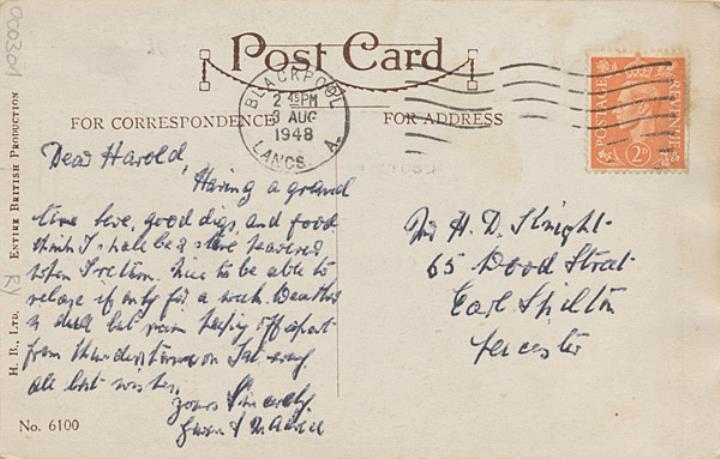 000301
Post Card
BLACKPOOL
2 45PM
3 AUG
1948
LANCS. A.
POSTAGE
REVENUE
2D
FOR CORRESPONDENCE
FOR ADDRESS
H. B., LTD. ENTIRE BRITISH PRODUCTION
Dear Harold,
Having a grand
time here, good digs, and food
think I shall be a
when I return. Nice to be able to
relax if only for a week. Weather
is dull but rain keeping off apart
from thunderstorm on Sat. evng.
All best wishes,
Yours Sincerely,
Gwen &
H. D. Knight
65 Wood Street
Earl Shilton
Leicester
No. 6100